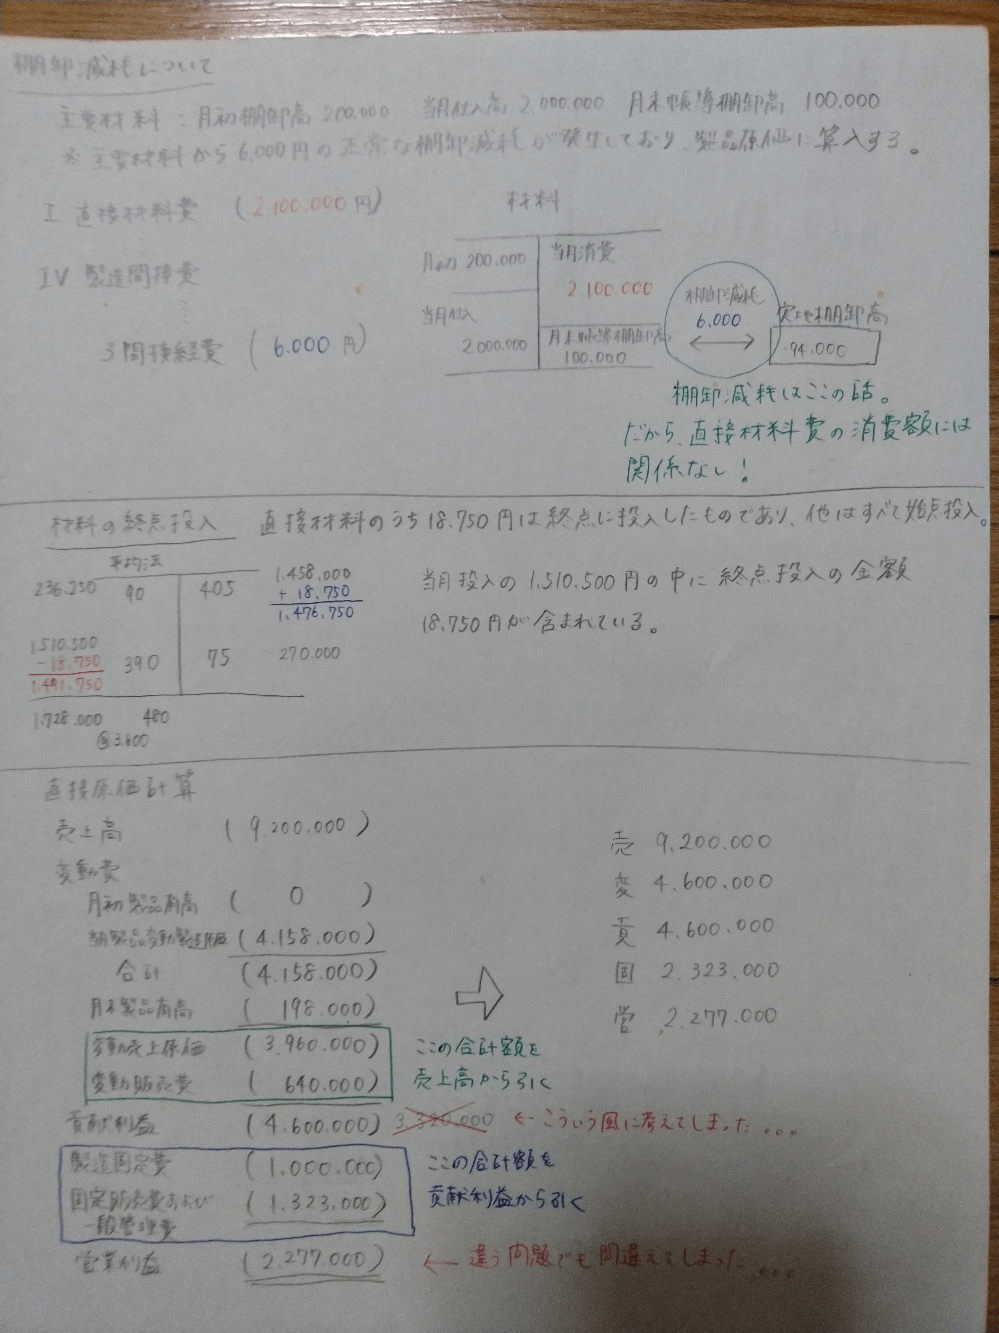 棚卸減耗について
主要材料：月初棚卸高 200.000 当月仕入高 2,000.000 月末帳簿棚卸高 100.000
※ 主要材料から6.000円の正常な棚卸減耗が発生しており、製品原価に算入する。
I 直接材料費 (2.100.000円)
IV 製造間接費
3 間接経費 (6.000円)
材料
月初 200.000
当月消費
2.100.000
当月仕入
2.000.000
月末帳簿棚卸高
100.000
棚卸減耗
6,000
実地棚卸高
94.000
棚卸減耗はここの話。
だから、直接材料費の消費額には
関係なし！
材料の終点投入 直接材料のうち18.750円は終点に投入したものであり、他はすべて始点投入。
平均法
236.250 90 405
1.458.000
+ 18.750
1.476.750
1.510.500
-18.750
1.491.750
390 75 270.000
1.728.000 480
@3.600
当月投入の1.510.500円の中に終点投入の金額
18.750円が含まれている。
直接原価計算
売上高 (9.200.000)
変動費
月初製品有高 ( 0 )
当月製品変動製造原価 (4.158.000)
合計 (4.158.000)
月末製品有高 ( 198.000)
変動売上原価 (3.960.000)
変動販売費 ( 640.000)
ここの合計額を
売上高から引く
貢献利益 (4.600.000) 3.320.000 ← こういう風に考えてしまった...
製造固定費 (1,000.000)
固定販売費および (1.323.000)
一般管理費
ここの合計額を
貢献利益から引く
営業利益 (2.277.000) ← 違う問題でも間違えてしまった....
売 9,200.000
変 4.600.000
貢 4.600.000
固 2.323.000
営 2.277.000